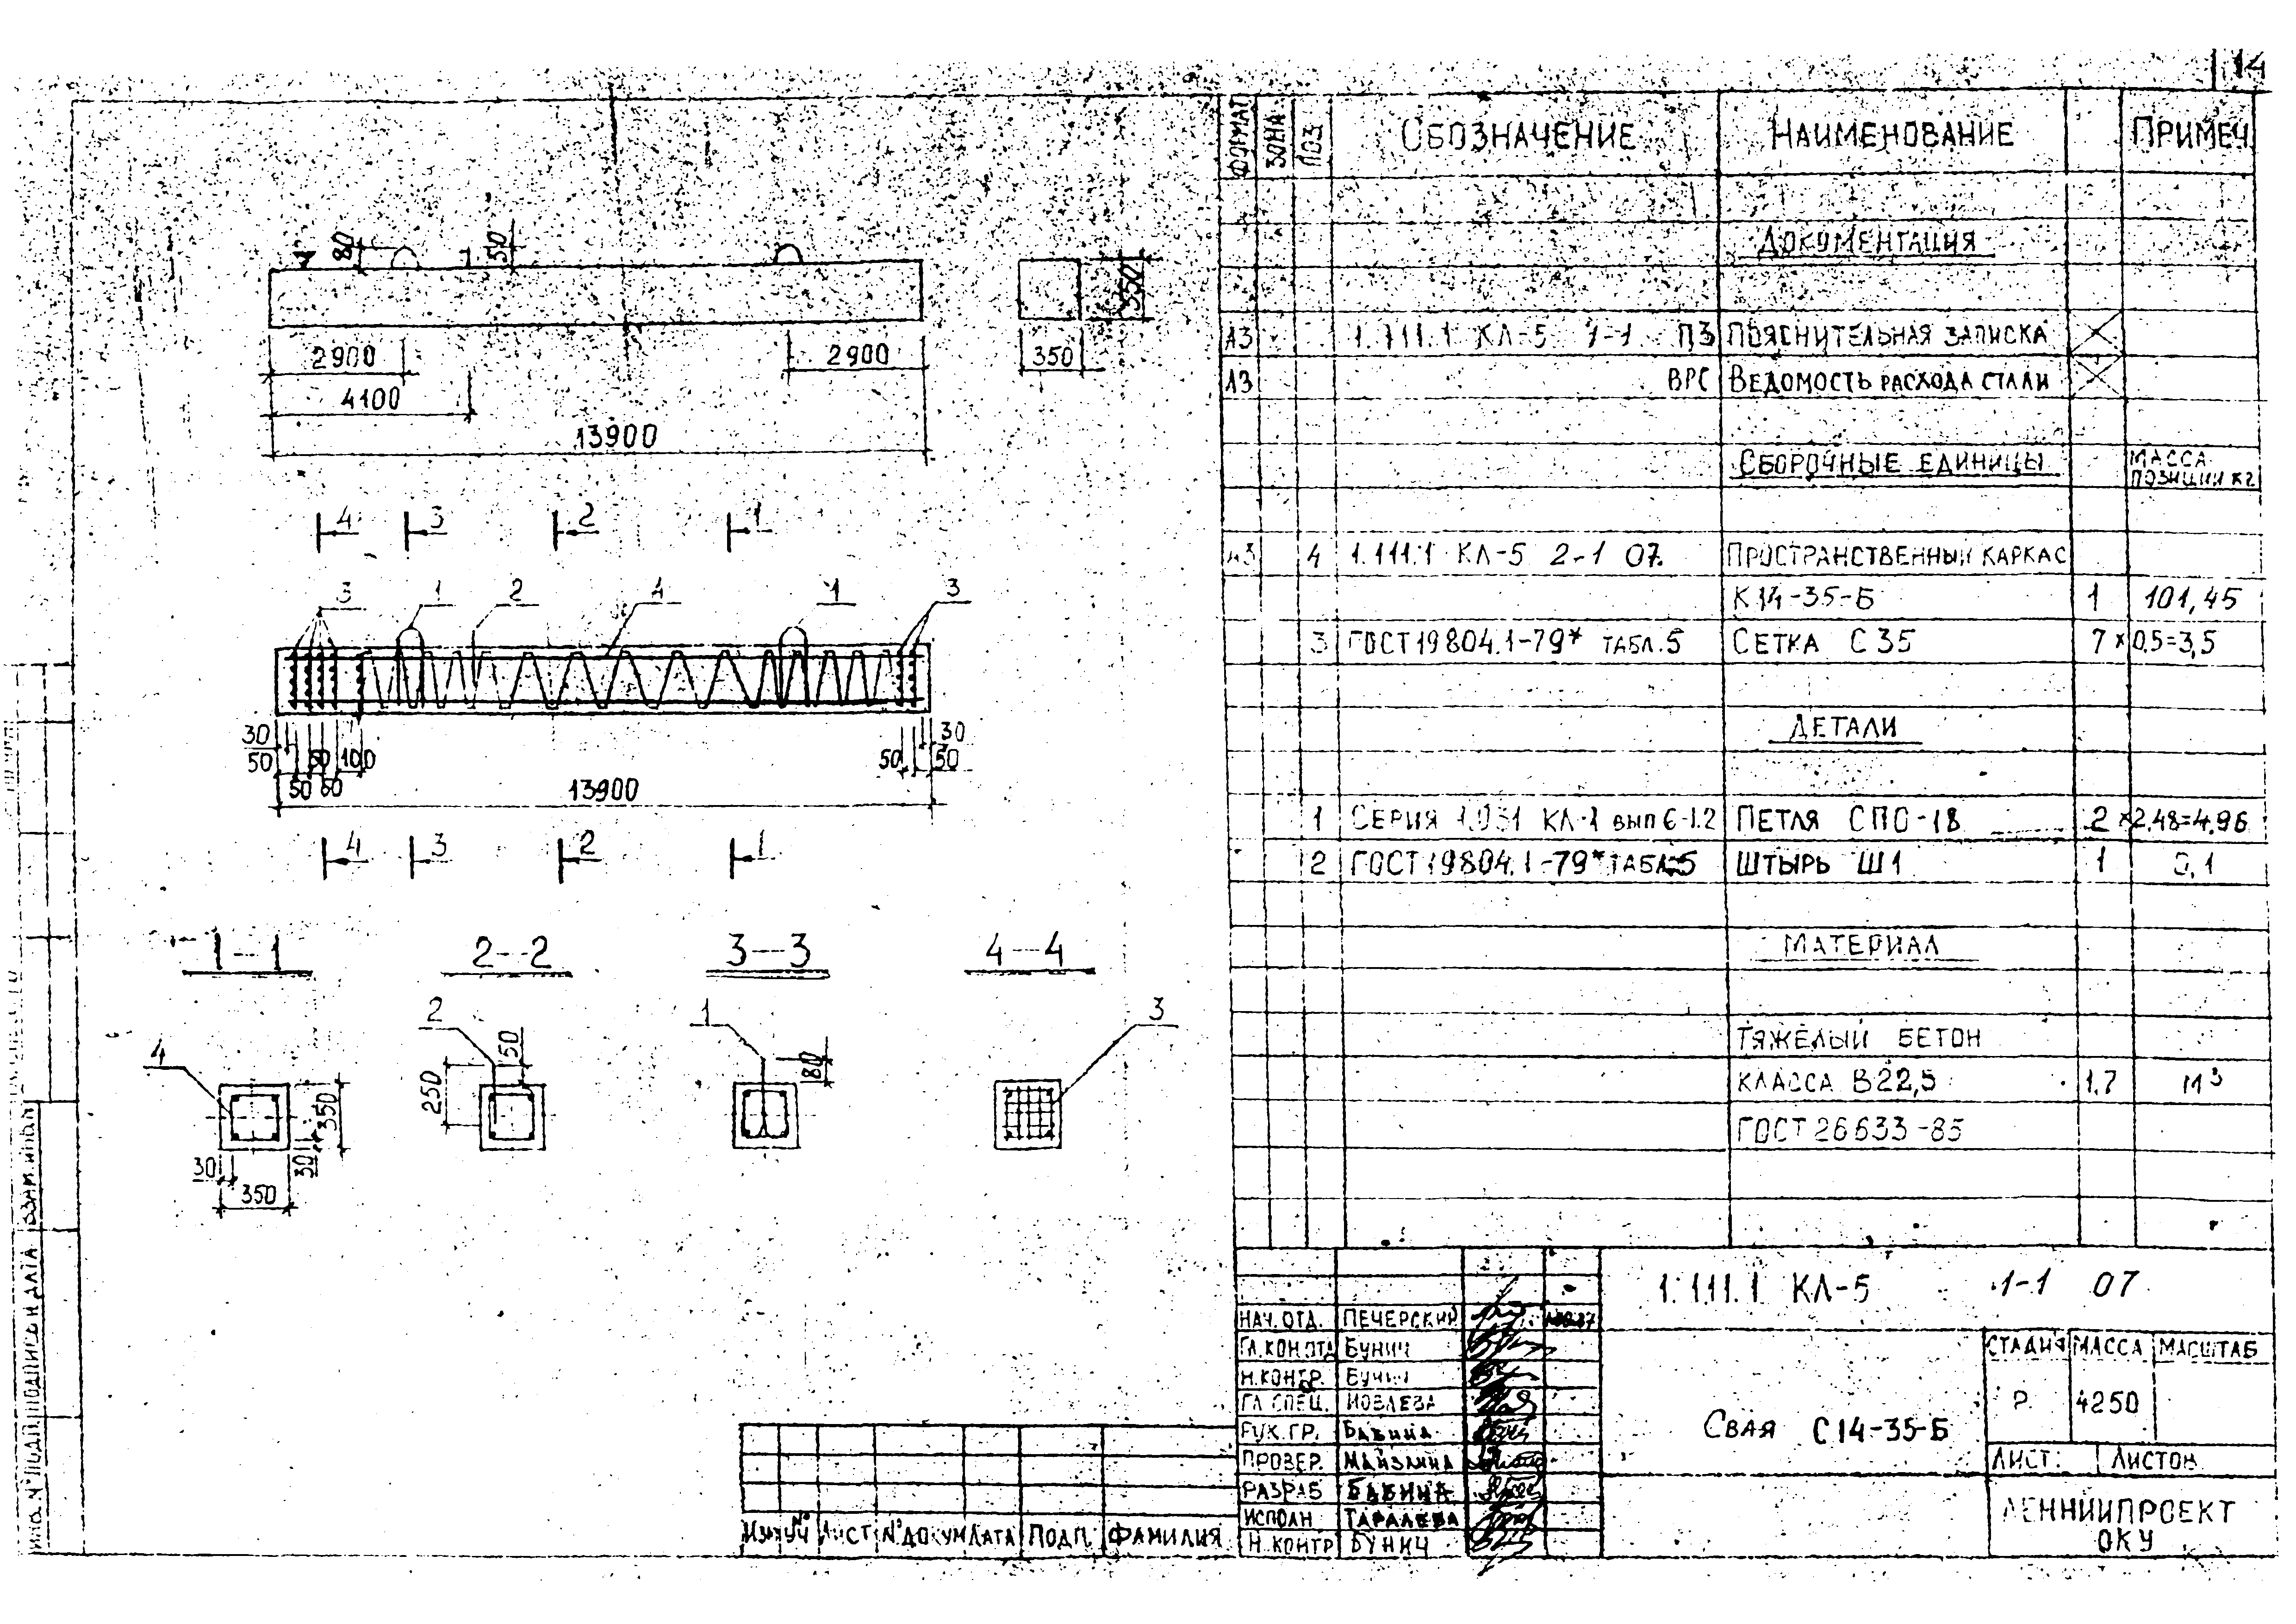 14
ФОРМАТ ЗОНА ПОЗ ОБОЗНАЧЕНИЕ НАИМЕНОВАНИЕ ПРИМЕЧ
ДОКУМЕНТАЦИЯ
А3 1.111.1 КЛ-5 1-1 ПЗ ПОЯСНИТЕЛЬНАЯ ЗАПИСКА
А3 ВРС ВЕДОМОСТЬ РАСХОДА СТАЛИ
СБОРОЧНЫЕ ЕДИНИЦЫ МАССА
ПОЗИЦИИ КГ
А3 4 1.111.1 КЛ-5 2-1 07. ПРОСТРАНСТВЕННЫЙ КАРКАС
К14-35-Б 1 101,45
3 ГОСТ 19804.1-79* ТАБЛ.5 СЕТКА С35 7 ×0,5=3,5
ДЕТАЛИ
1 СЕРИЯ 1.031 КЛ-1 ВЫП 6-1.2 ПЕТЛЯ СПО-18 2 ×2,48=4,96
2 ГОСТ 19804.1-79* ТАБЛ.5 ШТЫРЬ Ш1 1 0,1
МАТЕРИАЛ
ТЯЖЕЛЫЙ БЕТОН
КЛАССА В22,5 1,7 М³
ГОСТ 26633-85
80 50
350
2900 2900 350
4100
13900
4 3 2 1
3 1 2 4 1 3
30 30
50 50 100 50 50
50 50
13900
4 3 2 1
1-1 2-2 3-3 4-4
4 350 30
30
350
2 50
250
1 80
3
1.111.1 КЛ-5 1-1 07
НАЧ. ОТД. ПЕЧЕРСКИЙ
ГЛ.КОН.ОТД БУНИЧ
Н.КОНТР. БУНИЧ
ГЛ.СПЕЦ. ИОВЛЕВА
РУК.ГР. БАБИНА
ПРОВЕР. МАЙЗЛИНА
РАЗРАБ БАБИНА
ИСПОЛН ТАРАЛЕВА
Н.КОНТР БУНИЧ
СВАЯ С14-35-Б
СТАДИЯ МАССА МАСШТАБ
Р 4250
ЛИСТ. ЛИСТОВ
ЛЕННИИПРОЕКТ
ОКУ
ИЗМ № УЧ ЛИСТ № ДОКУМ ДАТА ПОДП. ФАМИЛИЯ
ИНВ. № ПОДЛ ПОДПИСЬ И ДАТА ВЗАМ.ИНВ.№